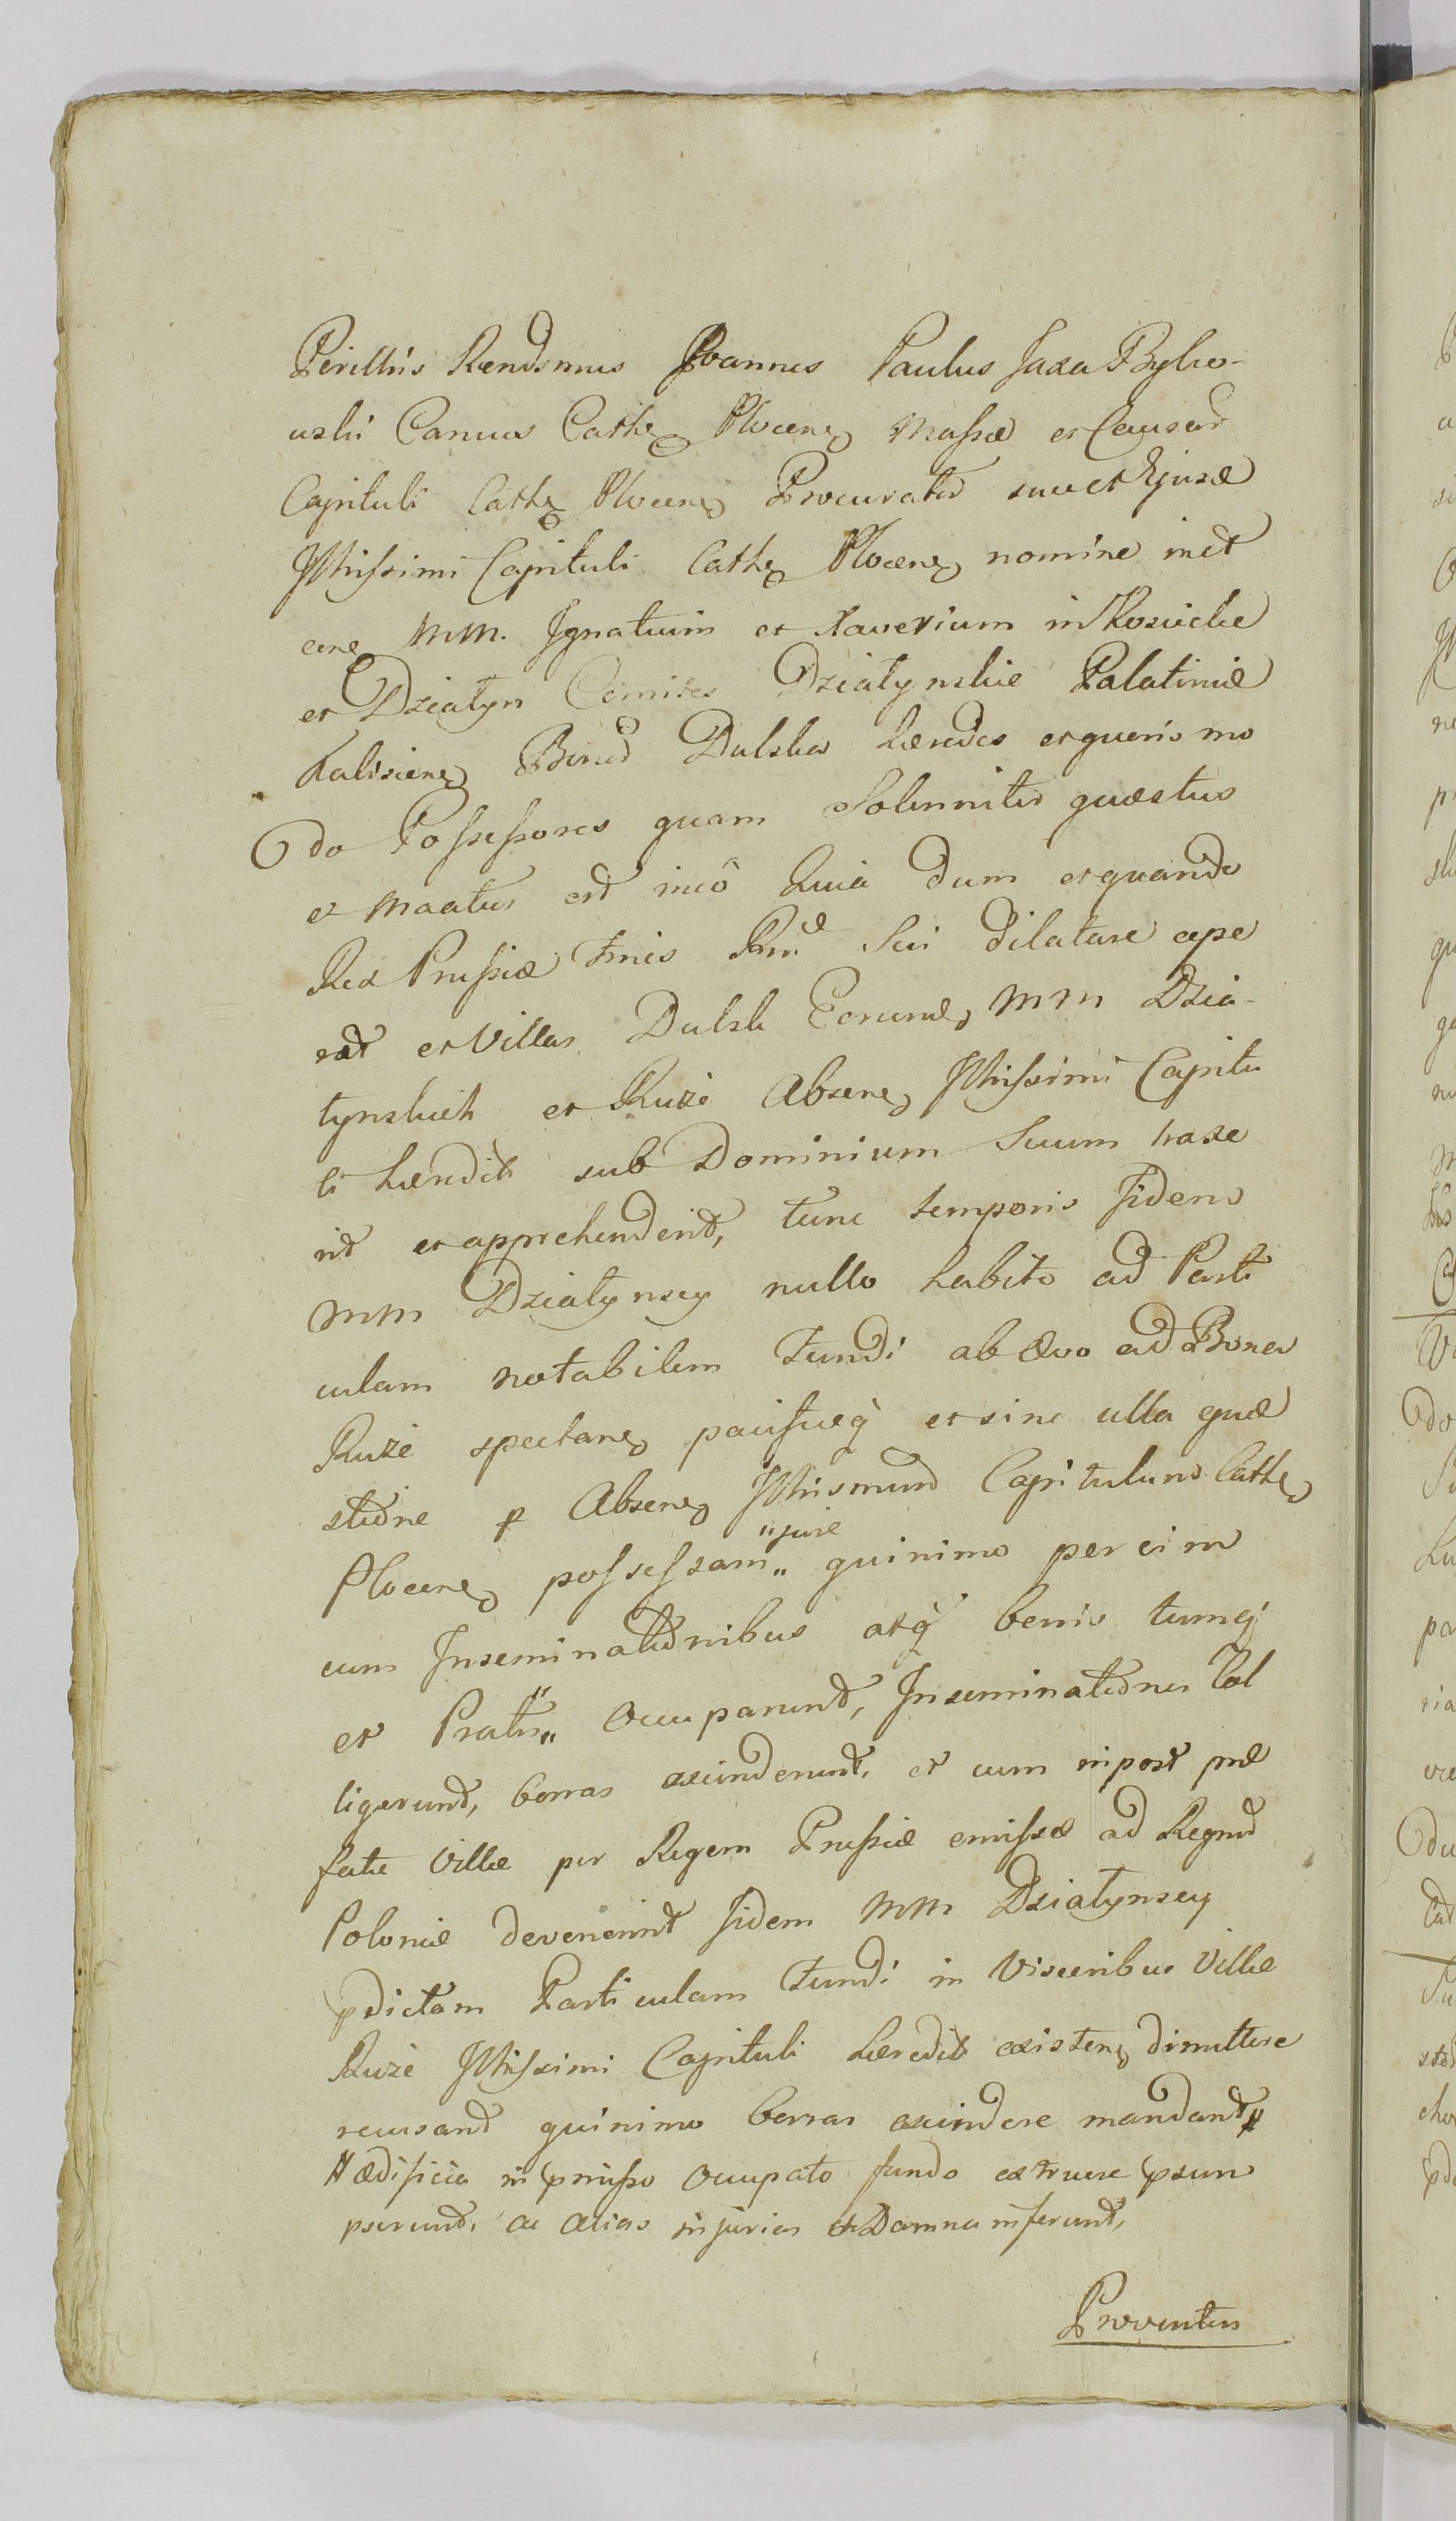 Perillris Rendsmus Joannes Paulus Jaxa Byko-
wski Canus Cathe Plocen Massæ et Causar
Capituli Cathe Plocen Procurator suo et Ejusd
Illtrissimi Capituli Cathe Plocen nomine inct
cone MM. Ignatium et Xaverium in Koscielec
et Działyn Comites Działynskie Palatinid
Kalisien Bonor Dulska hæredes et quovis mo
do Possessores quam Solenniter quæstus
et maatus est in eo Quia dum et quando
Rex Prussiæ Fines Rni Sui dilatare cæpe
rat et Villas Dulsk Eorund MM Dzia-
łynskich et Ruże Absen Illtrissimi Capitu
li hæredit sub Dominium Suum traxe
rit et apprehenderit, tunc temporis Iidem
MM Działynscy nullo habito ad Parti
culam notabilem Fundi ab ævo ad Bona
Ruże spectan pacificeq et sine ulla quæ
stione p Absen Illtrismum Capitulum Cathe
Plocen possessam „ jure „ quinimo per vim
cum Inseminationibus atq borris tumq
et Pratis „ Occuparunt, Inseminationes Col
ligerunt, borras exciderunt, et cum inpost præ
fatæ Villæ per Regem Prussiæ emissæ ad Regnum
Poloniæ devenerint Iidem MM Działynscy
pdictam Particulam Fundi in Visceribus Villæ
Ruże Illtrissimi Capituli Hæredit existen dimittere
recusant quinimo borras excindere mandant
ædificia in pmisso occupato fundo extruere psum
pserunt, ac alias injurias et Damna inferunt,
Proventus